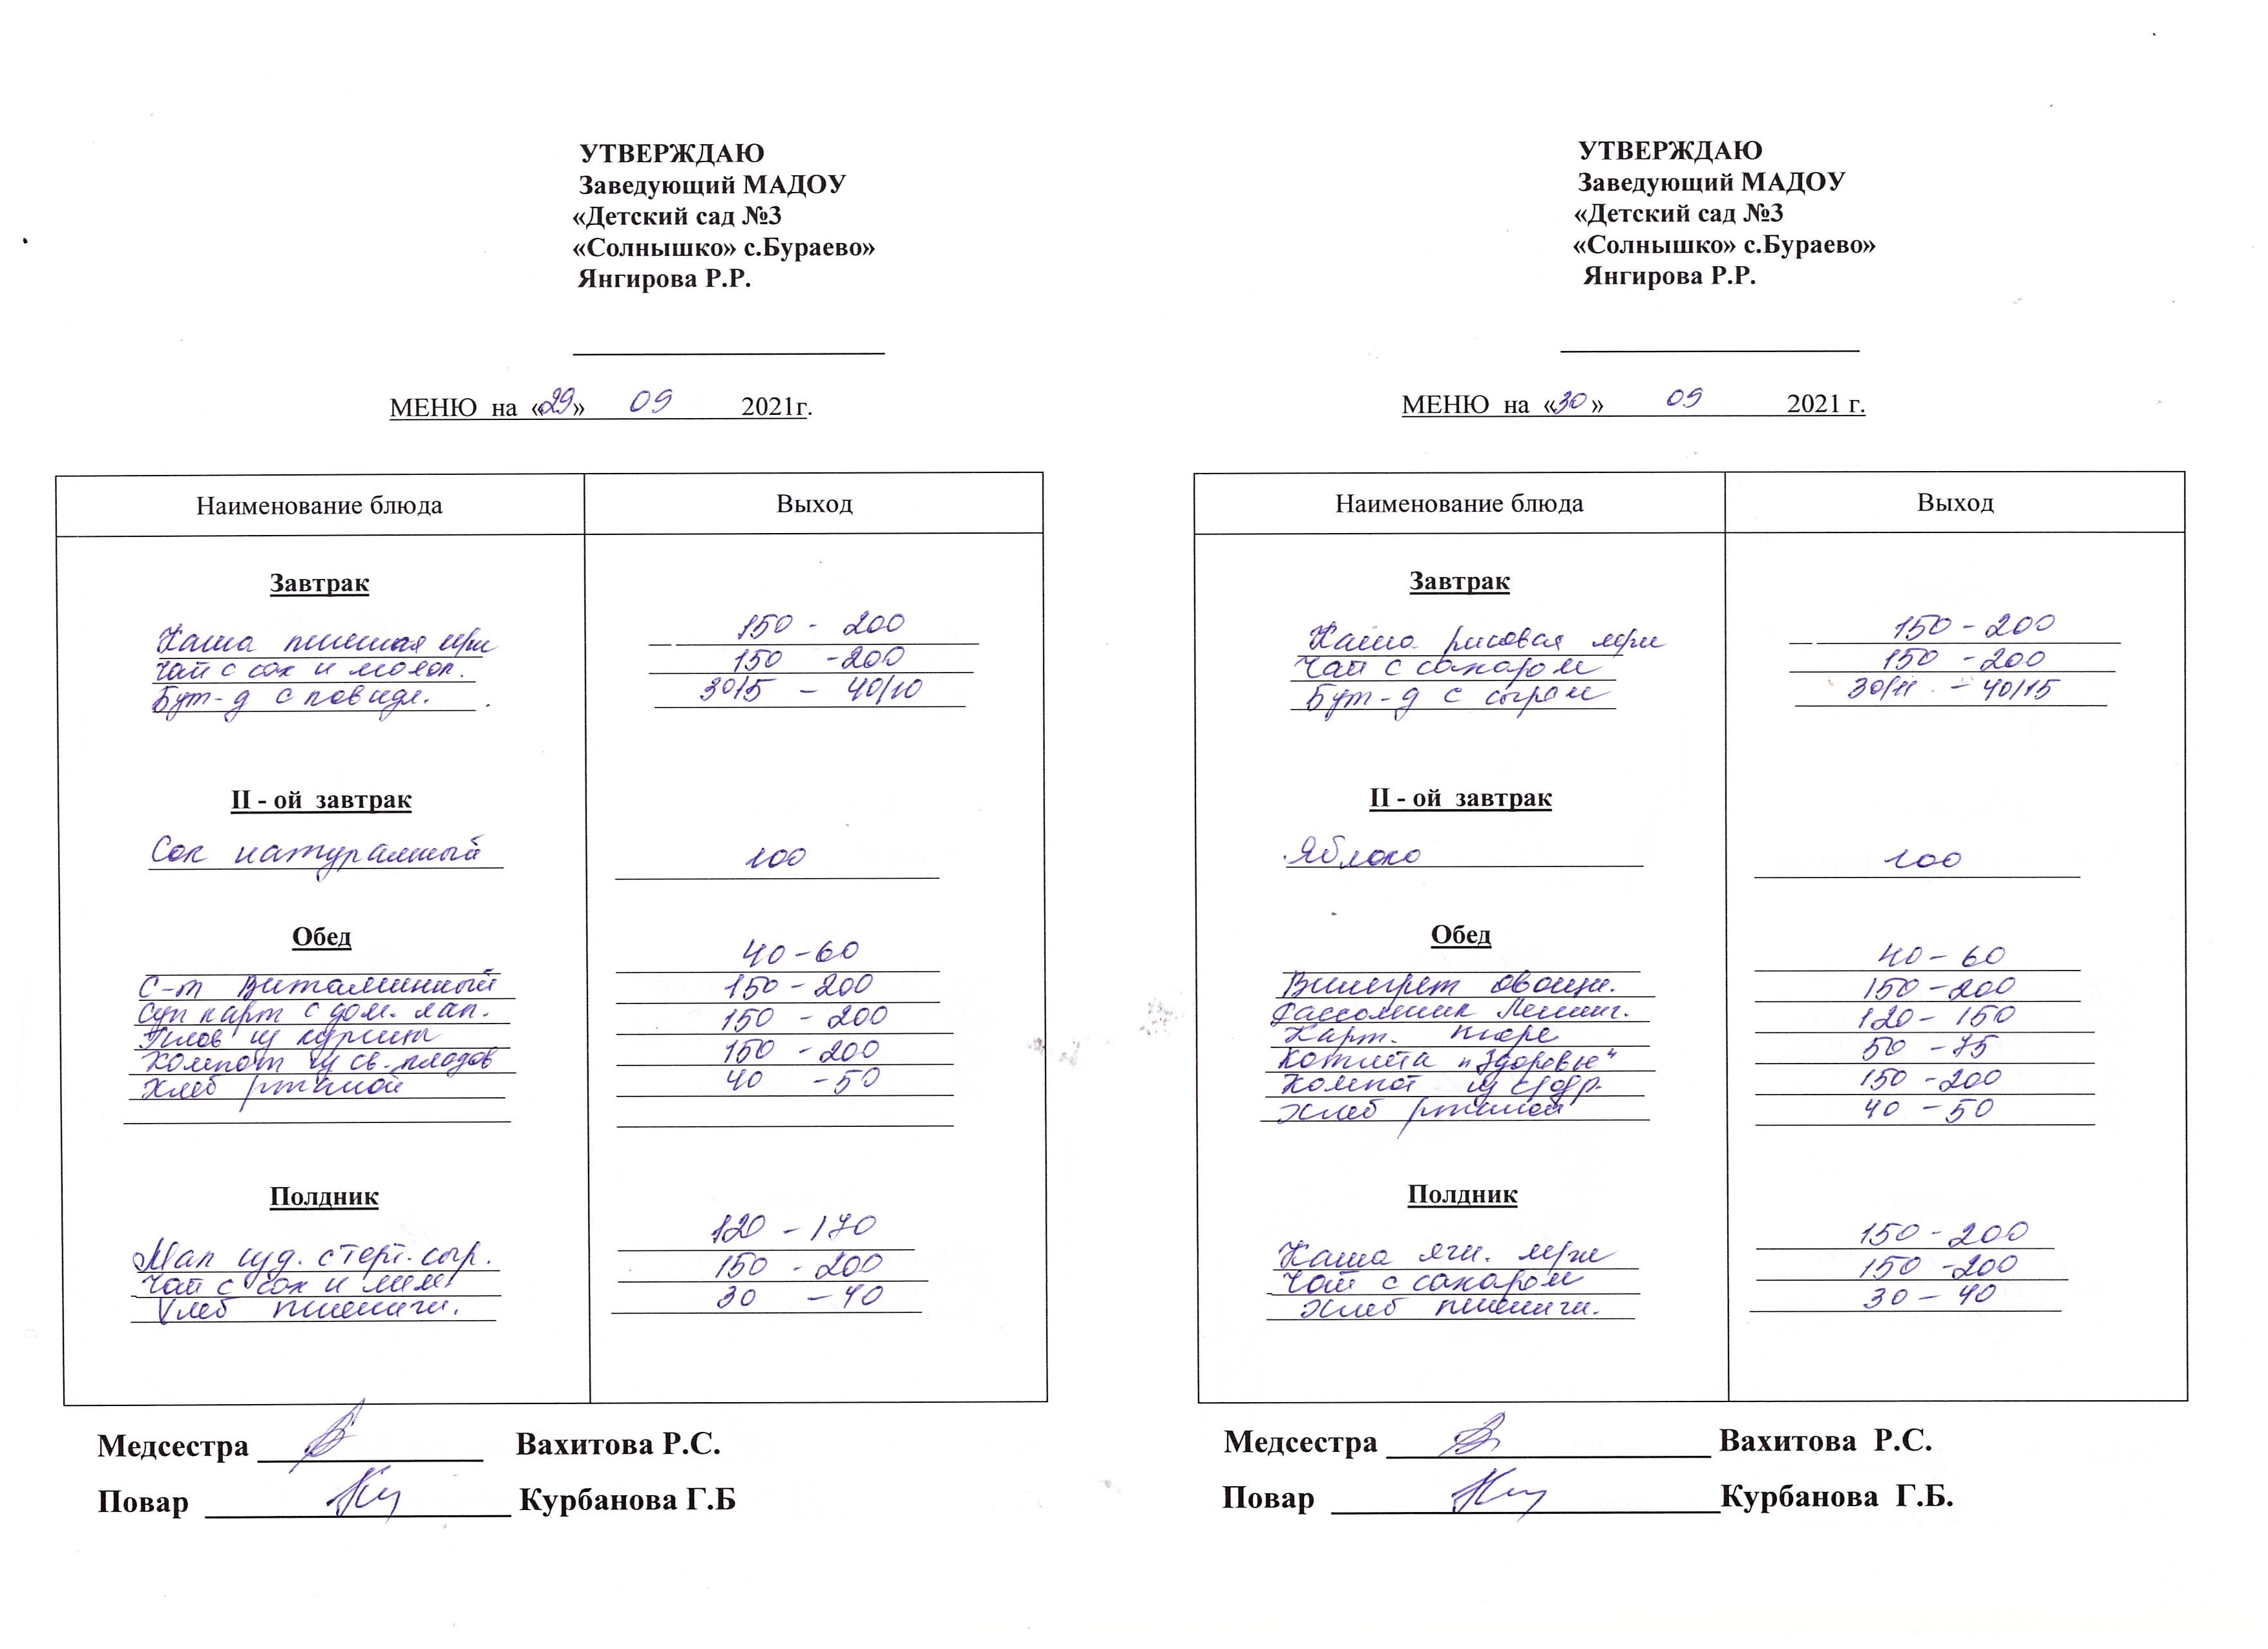 УТВЕРЖДАЮ
Заведующий МАДОУ
«Детский сад №3
«Солнышко» с.Бураево»
Янгирова Р.Р.
МЕНЮ на «29» 09 2021г.
Наименование блюда Выход
Завтрак
Каша пшенная 150 - 200
Чай с сах и молок. 150 - 200
Бут-д с повидл. 30/5 - 40/10
II - ой завтрак
Сок натуральный 100
Обед
С-т Витаминный 40 - 60
Суп карт с дом. лап. 150 - 200
Плов из курицы 150 - 200
Компот из св. плодов 150 - 200
Хлеб ржаной 40 - 50
Полдник
Мак изд. с терт. сыр. 120 - 170
Чай с сах и лим 150 - 200
Хлеб пшеничн. 30 - 40
Медсестра Вахитова Р.С.
Повар Курбанова Г.Б
УТВЕРЖДАЮ
Заведующий МАДОУ
«Детский сад №3
«Солнышко» с.Бураево»
Янгирова Р.Р.
МЕНЮ на «30» 09 2021 г.
Наименование блюда Выход
Завтрак
Каша рисовая 150 - 200
Чай с сахаром 150 - 200
Бут-д с сыром 30/11 - 40/15
II - ой завтрак
Яблоко 100
Обед
Винегрет овощн. 40 - 60
Рассольник Ленинг. 150 - 200
Карт. пюре 120 - 150
Котлета "Здоровье" 50 - 75
Компот из с/фр. 150 - 200
Хлеб ржаной 40 - 50
Полдник
Каша ячн. 150 - 200
Чай с сахаром 150 - 200
Хлеб пшеничн. 30 - 40
Медсестра Вахитова Р.С.
Повар Курбанова Г.Б.